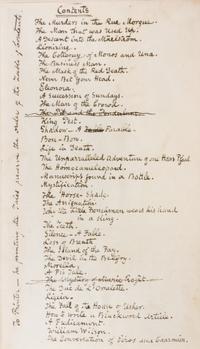 Contents
The Murders in the Rue Morgue.
The Man that was Used Up.
A Descent into the Maelström.
Lionizing.
The Colloquy of Monos and Una.
The Business Man.
The Mask of the Red Death.
Never Bet Your Head.
Eleonora.
A Succession of Sundays.
The Man of the Crowd.
The Pit and the Pendulum.
King Pest.
Shadow — A Parable.
Bon-Bon.
Life in Death.
The Unparralleled Adventure of one Hans Pfaall
The Homocameleopard.
Manuscript found in a Bottle.
Mystification.
The Horse-Shade.
The Assignation.
Why the little Frenchman wears his hand
in a sling.
The Teeth.
Silence — A Fable.
Loss of Breath.
The Island of the Fay.
The Devil in the Belfry.
Morella.
A Pig Tale.
The Mystery of Marie Rogêt.
The Duc de L'Omelette.
Ligeia.
The Fall of the House of Usher.
How to write a Blackwood Article.
A Predicament.
William Wilson.
The Conversation of Eiros and Charmion.
To Printer — In printing the Tales preserve the order of the Table of Contents.